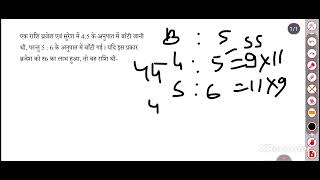 1/1
एक राशि ब्रजेश एवं सुरेश में 4:5 के अनुपात में बाँटी जानी
थी, परन्तु 5 : 6 के अनुपात में बाँटी गई। यदि इस प्रकार
ब्रजेश को ₹6 का लाभ हुआ, तो वह राशि थी-
B : S
55
44 4 : 5 = 9 × 11
5 : 6 = 11 × 9
4